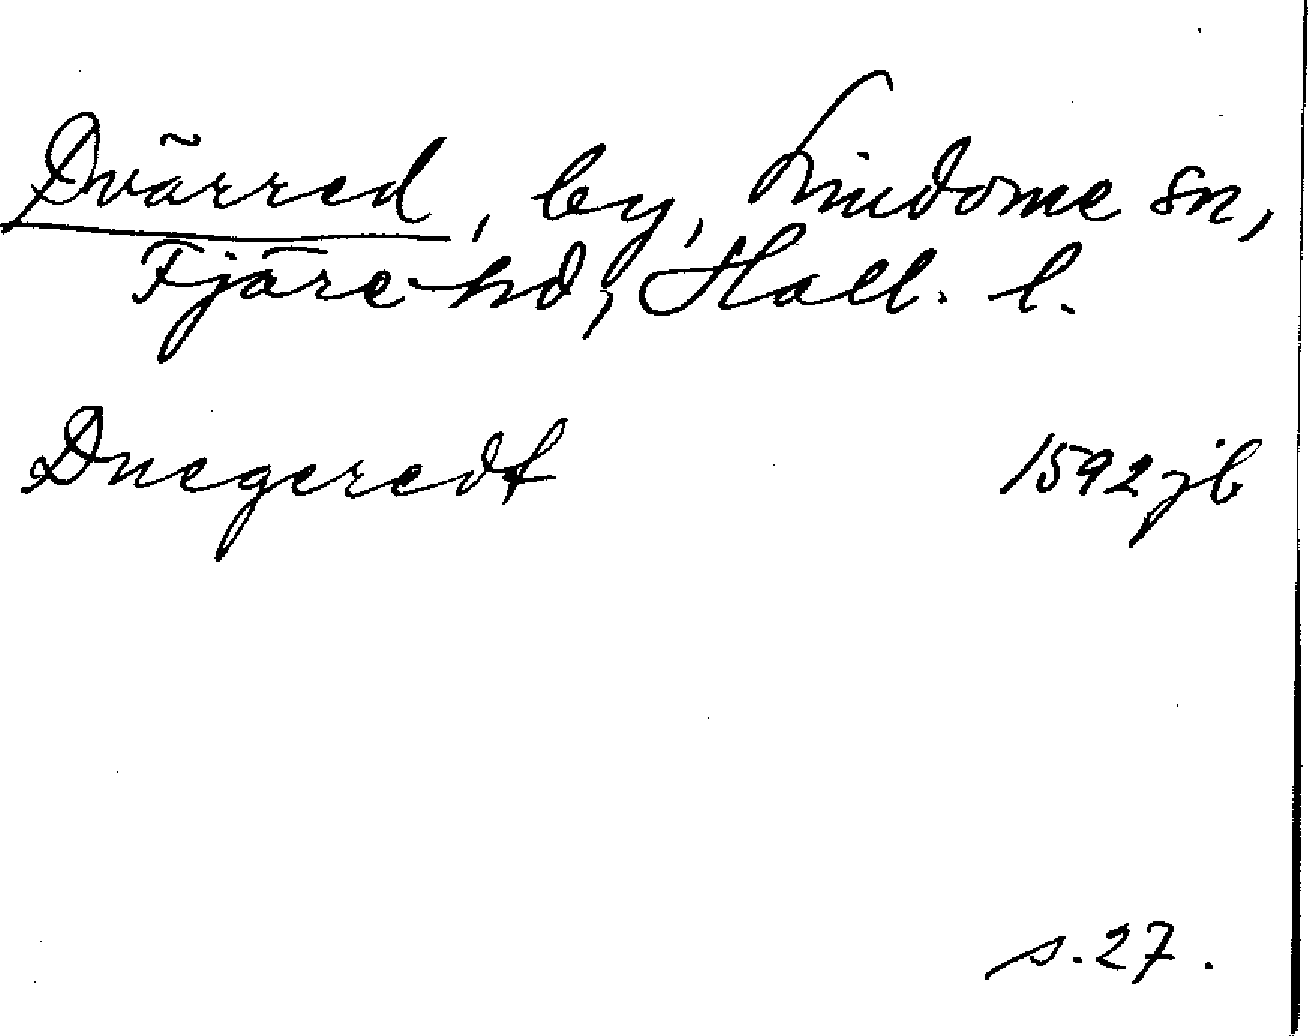 Dvärred, by, Lindome sn,
Fjäre hd, Hall. l.
Duegeredt 1592 jb
s. 27.